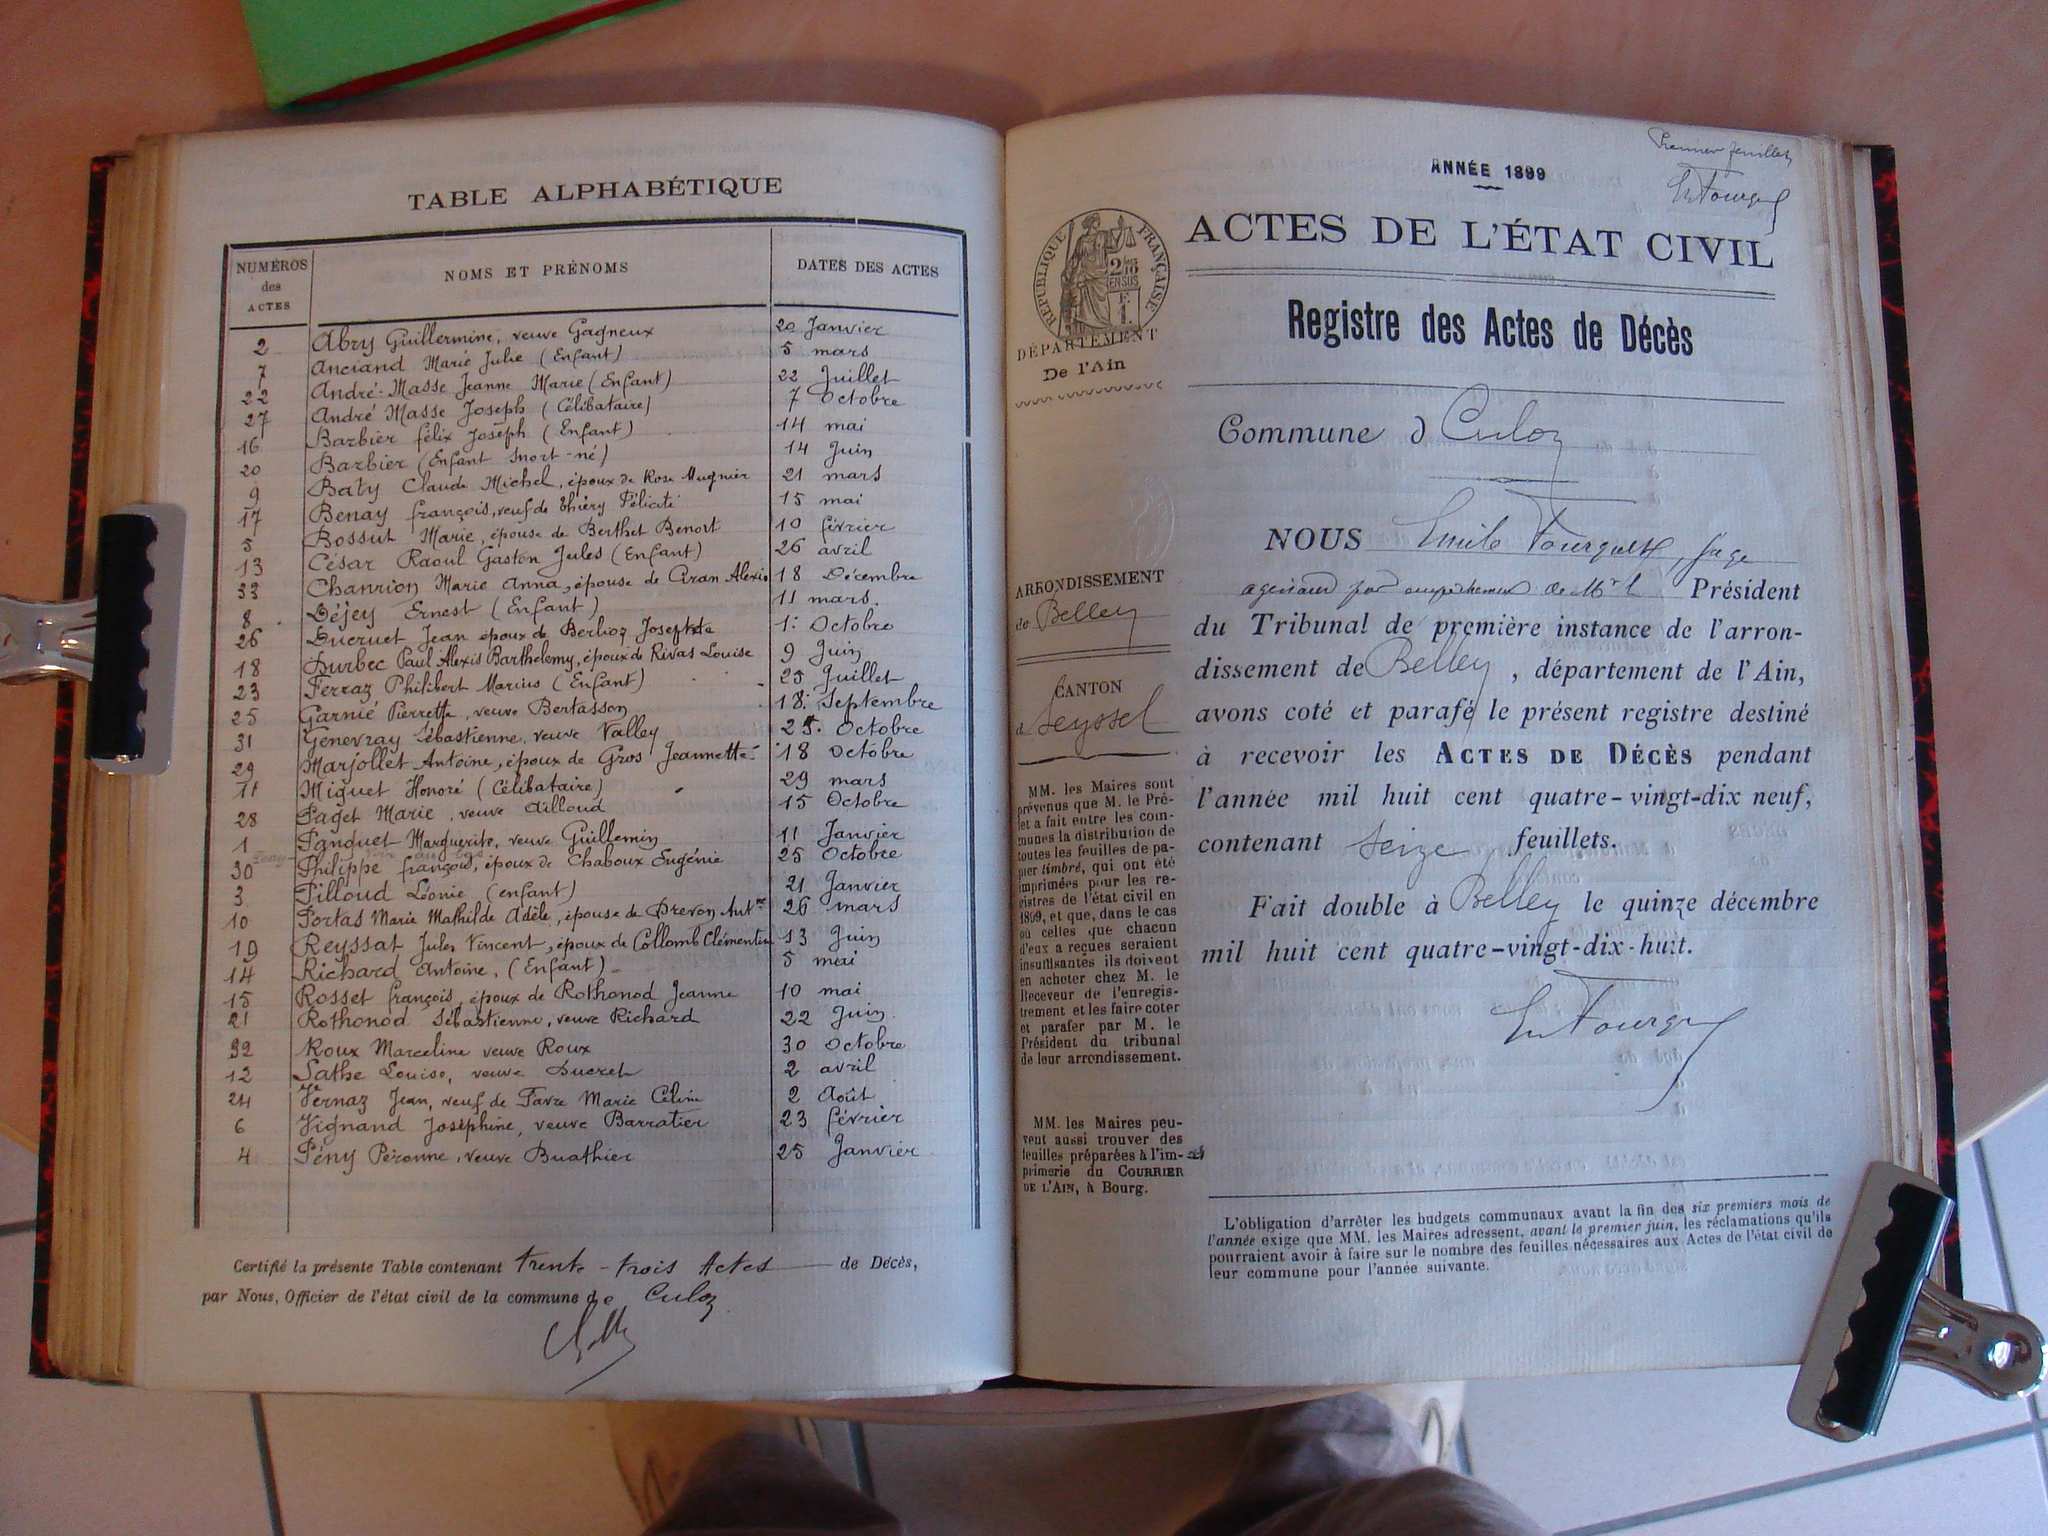 TABLE ALPHABÉTIQUE
NUMÉROS des ACTES NOMS ET PRÉNOMS DATES DES ACTES
2 Abry Guillermine, veuve Gagneux 20 Janvier
7 Anciand Marie Julie (Enfant) 5 mars
22 André-Masse Jeanne Marie (Enfant) 22 Juillet
27 André Masse Joseph (Célibataire) 7 Octobre
16 Barbier félix Joseph (Enfant) 14 mai
20 Barbier (Enfant mort-né) 14 Juin
9 Baty Claude Michel, époux de Rose Mugnier 21 mars
17 Benay françois, veuf de thiéry Félicité 15 mai
5 Bossut Marie, épouse de Berthet Benoit 10 février
13 César Raoul Gaston Jules (Enfant) 26 avril
33 Chanrion Marie Anna, épouse de Cran Alexis 18 Décembre
8 Déjey Ernest (Enfant) 11 mars.
26 Ducruet Jean époux de Berlioz Josephte 1: Octobre
18 Durbec Paul Alexis Barthelemy, époux de Rivas Louise 9 Juin
23 Ferraz Philibert Marius (Enfant) 25 Juillet
25 Garnié Pierrette, veuve Bertasson 18: Septembre
31 Genevray Sébastienne, veuve Valley 25. Octobre
29 Marjollet Antoine, époux de Gros Jeannette 18 Octobre
11 Miguet Honoré (Célibataire) 29 mars
28 Paget Marie, veuve Ailloud 15 Octobre
1 Panduet Marguerite, veuve Guillemin 11 Janvier
30 Philippe françois, époux de Chaboux Eugénie 25 Octobre
3 Pilloud Léonie (enfant) 21 Janvier
10 Portas Marie Mathilde Adèle, épouse de Drevon Antne 26 mars
19 Reyssat Jules Vincent, époux de Collomb Clémentine 13 Juin
14 Richard Antoine, (Enfant) 5 mai
15 Rosset françois, époux de Rothonod Jeanne 10 mai
21 Rothonod Sébastienne, veuve Richard 22 Juin
32 Roux Marceline veuve Roux 30 Octobre
12 Sathe Louise, veuve Ducret 2 avril
24 Vernaz Jean, veuf de Favre Marie Céline 2 Août
6 Vignand Joséphine, veuve Barratier 23 février
4 Pény Péronne, veuve Buathier 25 Janvier
Certifié la présente Table contenant trente-trois Actes de Décès,
par Nous, Officier de l'état civil de la commune de Culoz
Premier feuillet
Em Fourquet
ANNÉE 1899
RÉPUBLIQUE FRANÇAISE
ACTES DE L'ÉTAT CIVIL
DÉPARTEMENT
De l'Ain
Registre des Actes de Décès
Commune d Culoz
NOUS Emile Fourquet, Juge
agissant par empêchement de Mr le Président
du Tribunal de première instance de l'arron-
dissement de Belley, département de l'Ain,
avons coté et parafé le présent registre destiné
à recevoir les ACTES DE DÉCÈS pendant
l'année mil huit cent quatre-vingt-dix neuf,
contenant Seize feuillets.
Fait double à Belley le quinze décembre
mil huit cent quatre-vingt-dix-huit.
Em Fourquet
ARRONDISSEMENT
de Belley
CANTON
d Seyssel
MM. les Maires sont
prévenus que M. le Pré-
fet a fait entre les com-
munes la distribution de
toutes les feuilles de pa-
pier timbré, qui ont été
imprimées pour les re-
gistres de l'état civil en
1899, et que, dans le cas
où celles que chacun
d'eux a reçues seraient
insuffisantes ils doivent
en acheter chez M. le
Receveur de l'enregis-
trement et les faire coter
et parafer par M. le
Président du tribunal
de leur arrondissement.
MM. les Maires peu-
vent aussi trouver des
feuilles préparées à l'im-
primerie du COURRIER
DE L'AIN, à Bourg.
L'obligation d'arrêter les budgets communaux avant la fin des six premiers mois de
l'année exige que MM. les Maires adressent, avant le premier juin, les réclamations qu'ils
pourraient avoir à faire sur le nombre des feuilles nécessaires aux Actes de l'état civil de
leur commune pour l'année suivante.